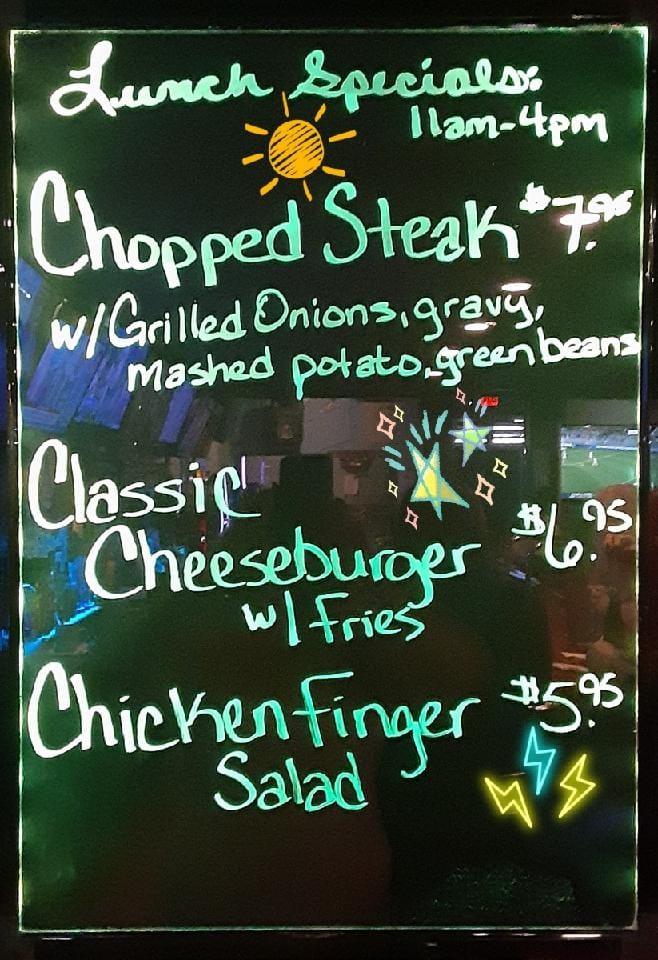 Lunch Specials:
11am-4pm
Chopped Steak $7.95
w/Grilled Onions, gravy,
Mashed potato, green beans
Classic
Cheeseburger $6.95
w/ Fries
Chicken Finger $5.95
Salad